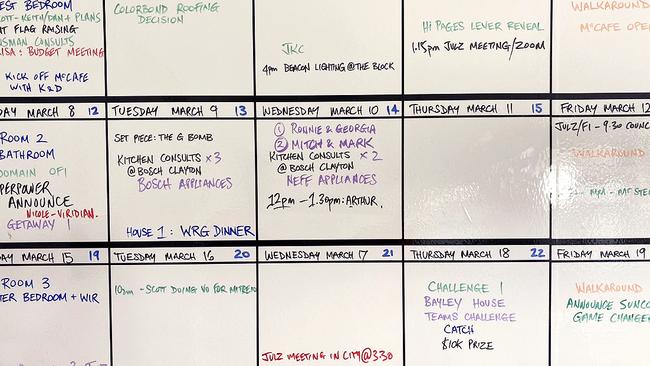 EST BEDROOM
OTT-KEITH/DAN + PLANS
HT FLAG RAISING
NSMAN CONSULTS
LISA: BUDGET MEETING
KICK OFF McCAFE
WITH K&D
COLORBOND ROOFING
DECISION
JKC
4pm BEACON LIGHTING @ THE BLOCK
Hi PAGES LEVER REVEAL
1.15pm JULZ MEETING/ZOOM
WALKAROUND
McCAFE OPEN
DAY MARCH 8 12
TUESDAY MARCH 9 13
WEDNESDAY MARCH 10 14
THURSDAY MARCH 11 15
FRIDAY MARCH 12
ROOM 2
BATHROOM
DOMAIN OF1
PERPOWER
ANNOUNCE
NICOLE-VIRIDIAN.
GETAWAY 1
SET PIECE: THE G BOMB
KITCHEN CONSULTS x3
@ BOSCH CLAYTON
BOSCH APPLIANCES
HOUSE 1: WRG DINNER
① RONNIE & GEORGIA
② MITCH & MARK
KITCHEN CONSULTS x 2
@ BOSCH CLAYTON
NEFF APPLIANCES
12pm - 1.30pm: ARTHUR.
JULZ/F1 - 9:30 COUNC
WALKAROUND
DAY MARCH 15 19
TUESDAY MARCH 16 20
WEDNESDAY MARCH 17 21
THURSDAY MARCH 18 22
FRIDAY MARCH 19
ROOM 3
TER BEDROOM + WIR
10am - SCOTT DOING VO FOR
JULZ MEETING IN CITY @ 3:30
CHALLENGE 1
BAYLEY HOUSE
TEAMS CHALLENGE
CATCH
$10K PRIZE
WALKAROUND
ANNOUNCE SUNCO
GAME CHANGER